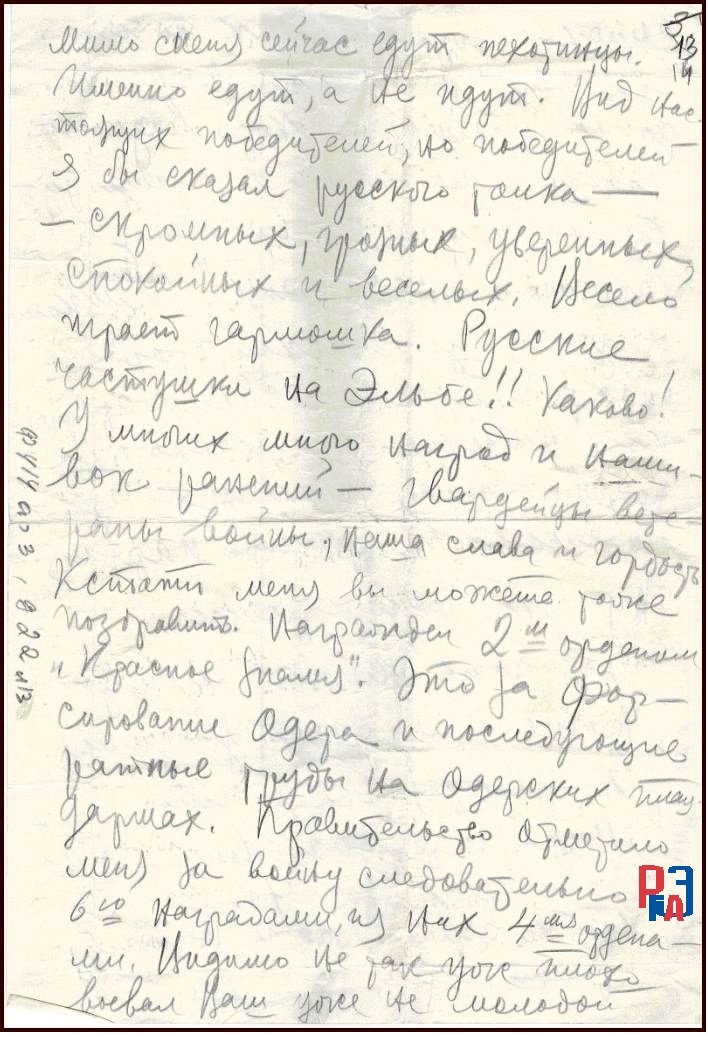 Мимо меня сейчас едут пехотинцы.
Именно едут, а не идут. Вид нас-
тоящих победителей, но победителей
Я бы сказал русского толка —
— скромных, грозных, уверенных,
спокойных и веселых. Весело
играет гармошка. Русские
частушки на Эльбе!! Каково!
У многих много наград и наши-
вок ранений — гвардейцы вете-
раны войны, наша слава и гордость
Кстати меня вы можете тоже
поздравить. Награжден 2м орденом
"Красное знамя". Это за фор-
сирование Одера и последующие
ратные труды на Одерских плац-
дармах. Правительство отметило
меня за войну следовательно
6ю наградами, из них 4мя ордена-
ми. Видимо не так уж плохо
воевал Ваш уже не молодой
13
14
РЭ
ГА